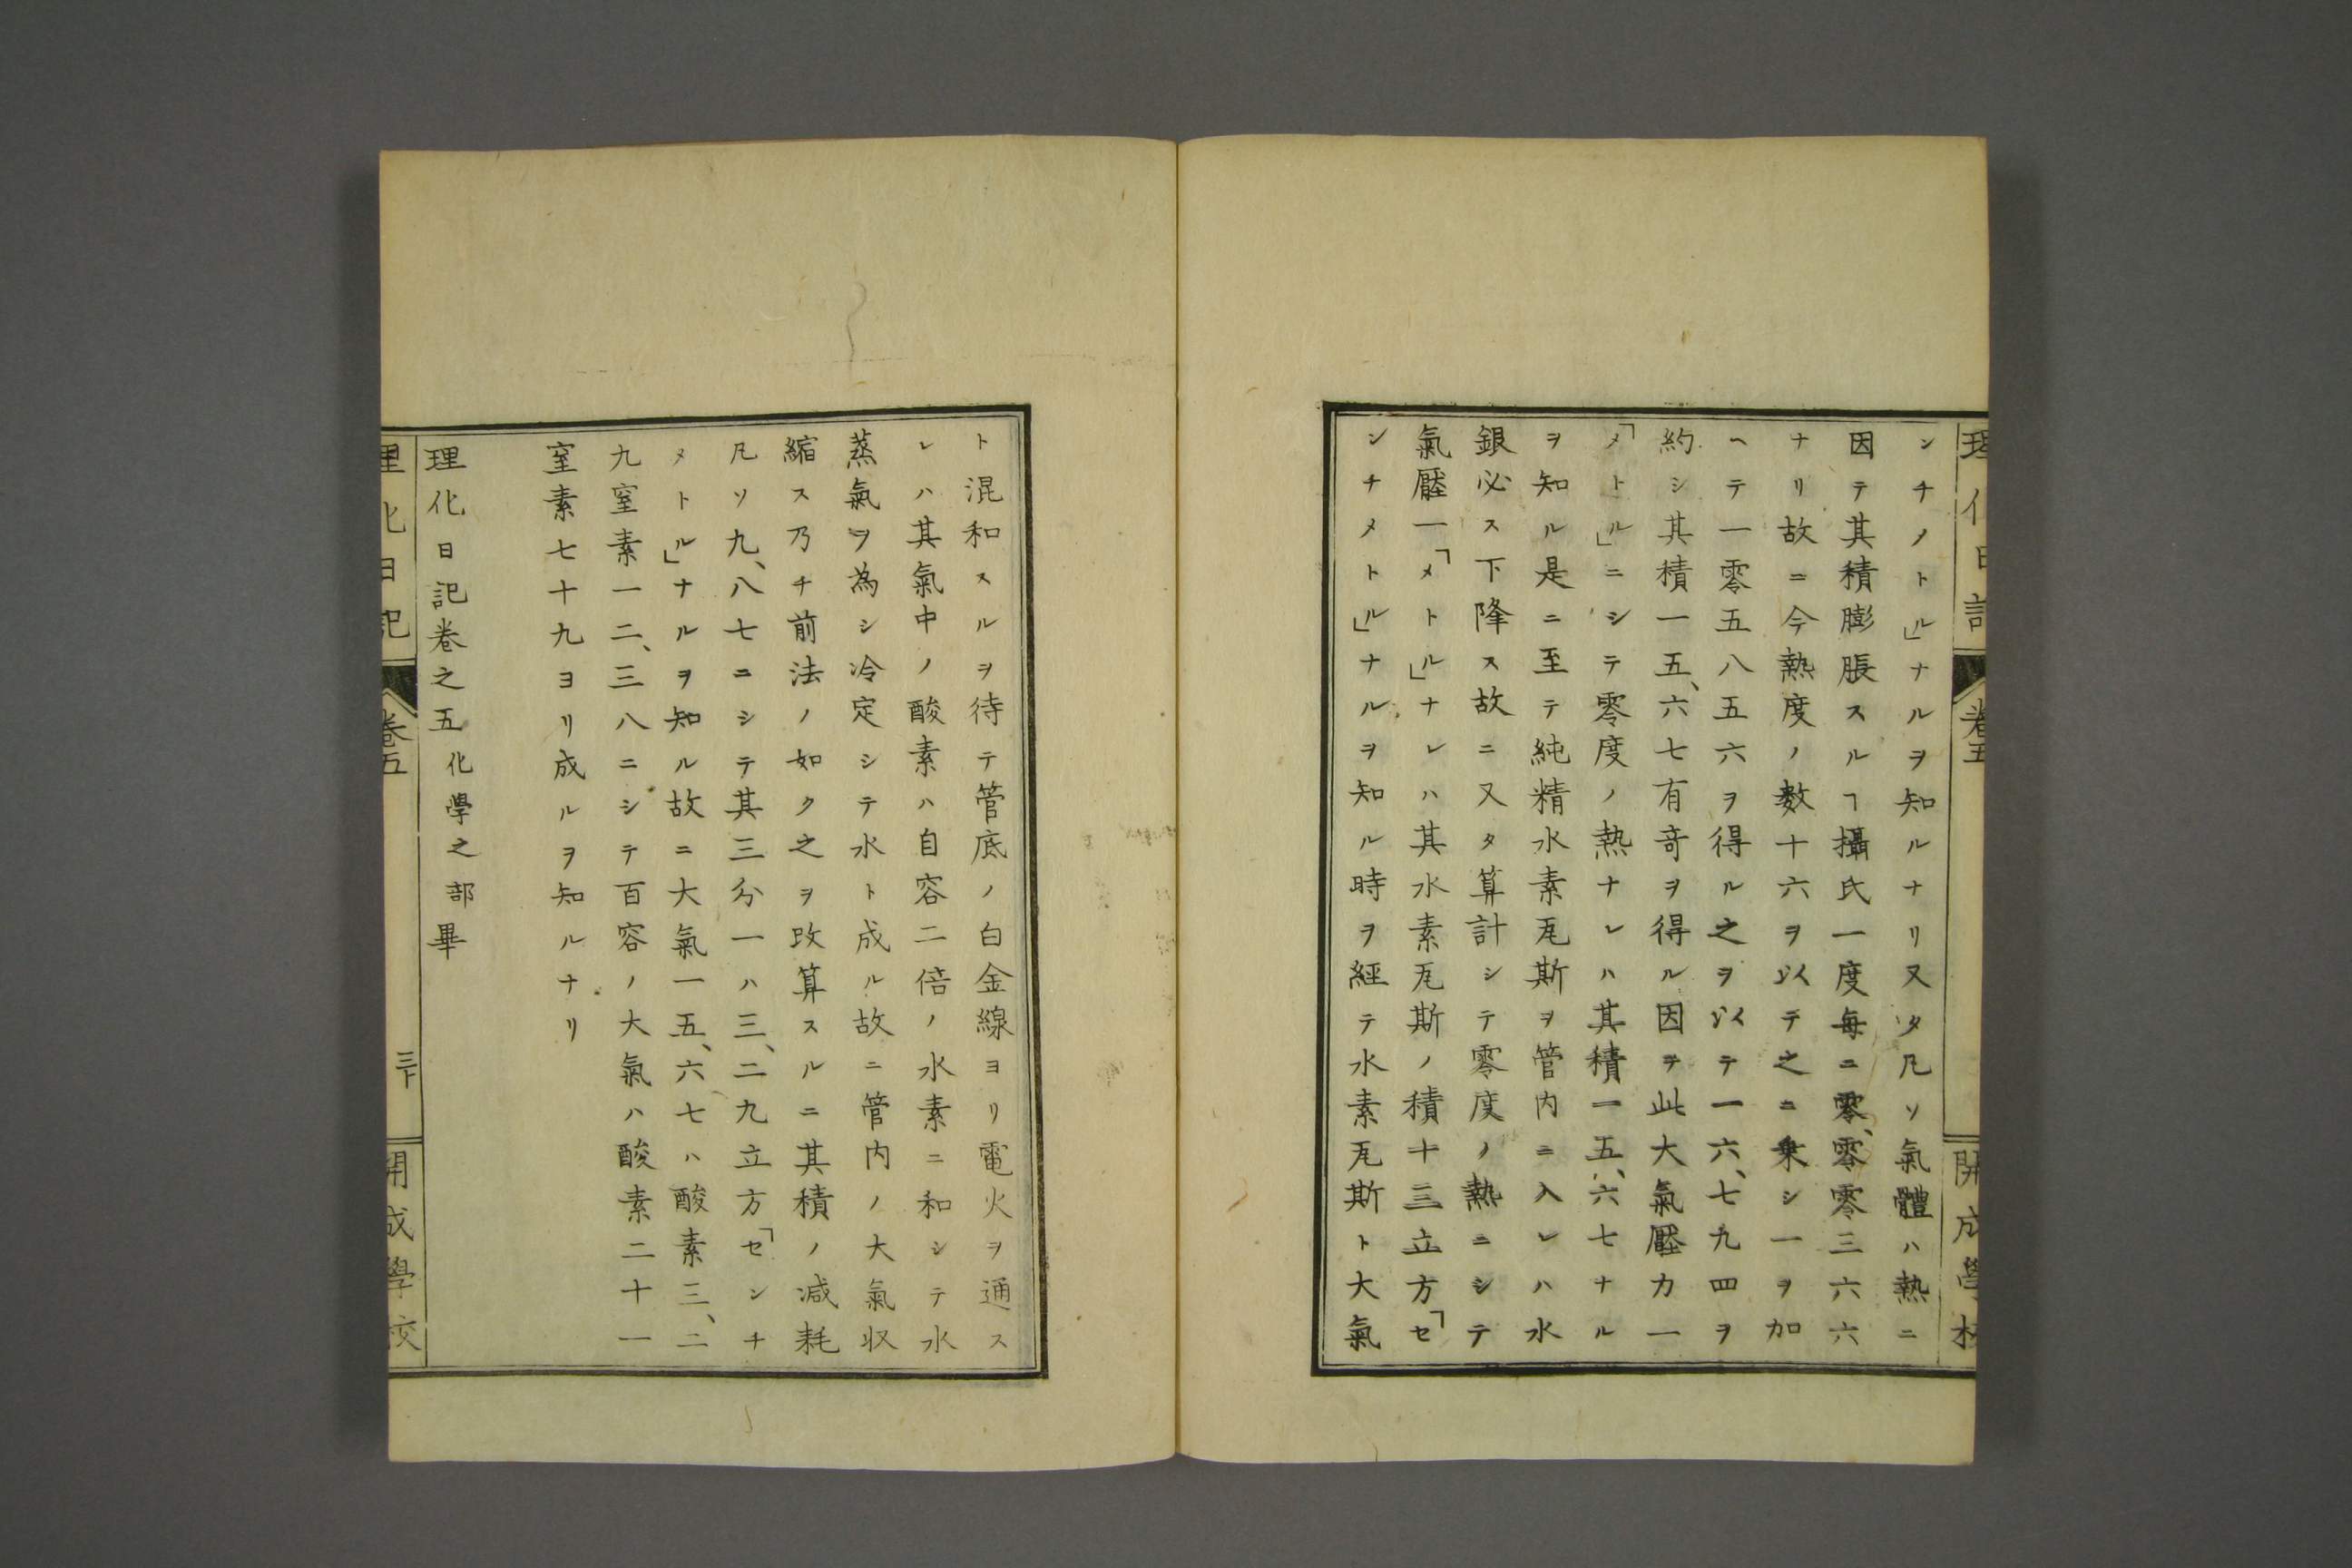 理化日記
卷五
開成學校
ンチノトル」ナルヲ知ルナリ又タ凡ソ氣體ハ熱ニ
因テ其積膨脹スルヿ攝氏一度每ニ零、零零三六六
ナリ故ニ今熱度ノ數十六ヲ以テ之ニ乗シ一ヲ加
ヘテ一零五八五六ヲ得ル之ヲ以テ一六、七九四ヲ
約シ其積一五、六七有奇ヲ得ル因テ此大氣壓力一
「メトル」ニシテ零度ノ熱ナレハ其積一五、六七ナル
ヲ知ル是ニ至テ純精水素瓦斯ヲ管内ニ入レハ水
銀必ス下降ス故ニ又タ算計シテ零度ノ熱ニシテ
氣壓一「メトル」ナレハ其水素瓦斯ノ積十三立方「セ
ンチメトル」ナルヲ知ル時ヲ經テ水素瓦斯ト大氣
ト混和スルヲ待テ管底ノ白金線ヨリ電火ヲ通ス
レハ其氣中ノ酸素ハ自容二倍ノ水素ニ和シテ水
蒸氣ヲ為シ冷定シテ水ト成ル故ニ管内ノ大氣収
縮ス乃チ前法ノ如ク之ヲ改算スルニ其積ノ減耗
凡ソ九、八七ニシテ其三分一ハ三、二九立方「センチ
メトル」ナルヲ知ル故ニ大氣一五、六七ハ酸素三、二
九窒素一二、三八ニシテ百容ノ大氣ハ酸素二十一
窒素七十九ヨリ成ルヲ知ルナリ
理化日記卷之五 化學之部 畢
理化日記
卷五
三十
開成學校